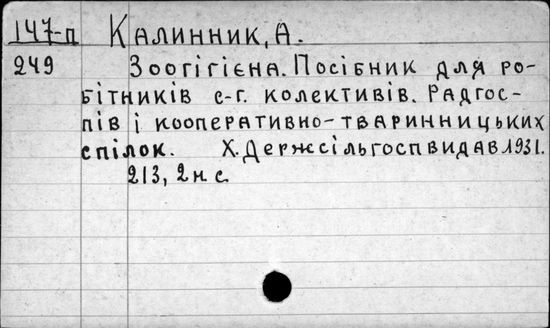 147-п Калинник, А.
249 Зоогігієна. Посібник для ро-
бітників с-г. колективів. Радгос-
пів і кооперативно-тваринницьких
спілок. Х. Держсільгоспвидав 1931.
213, 2 н с.